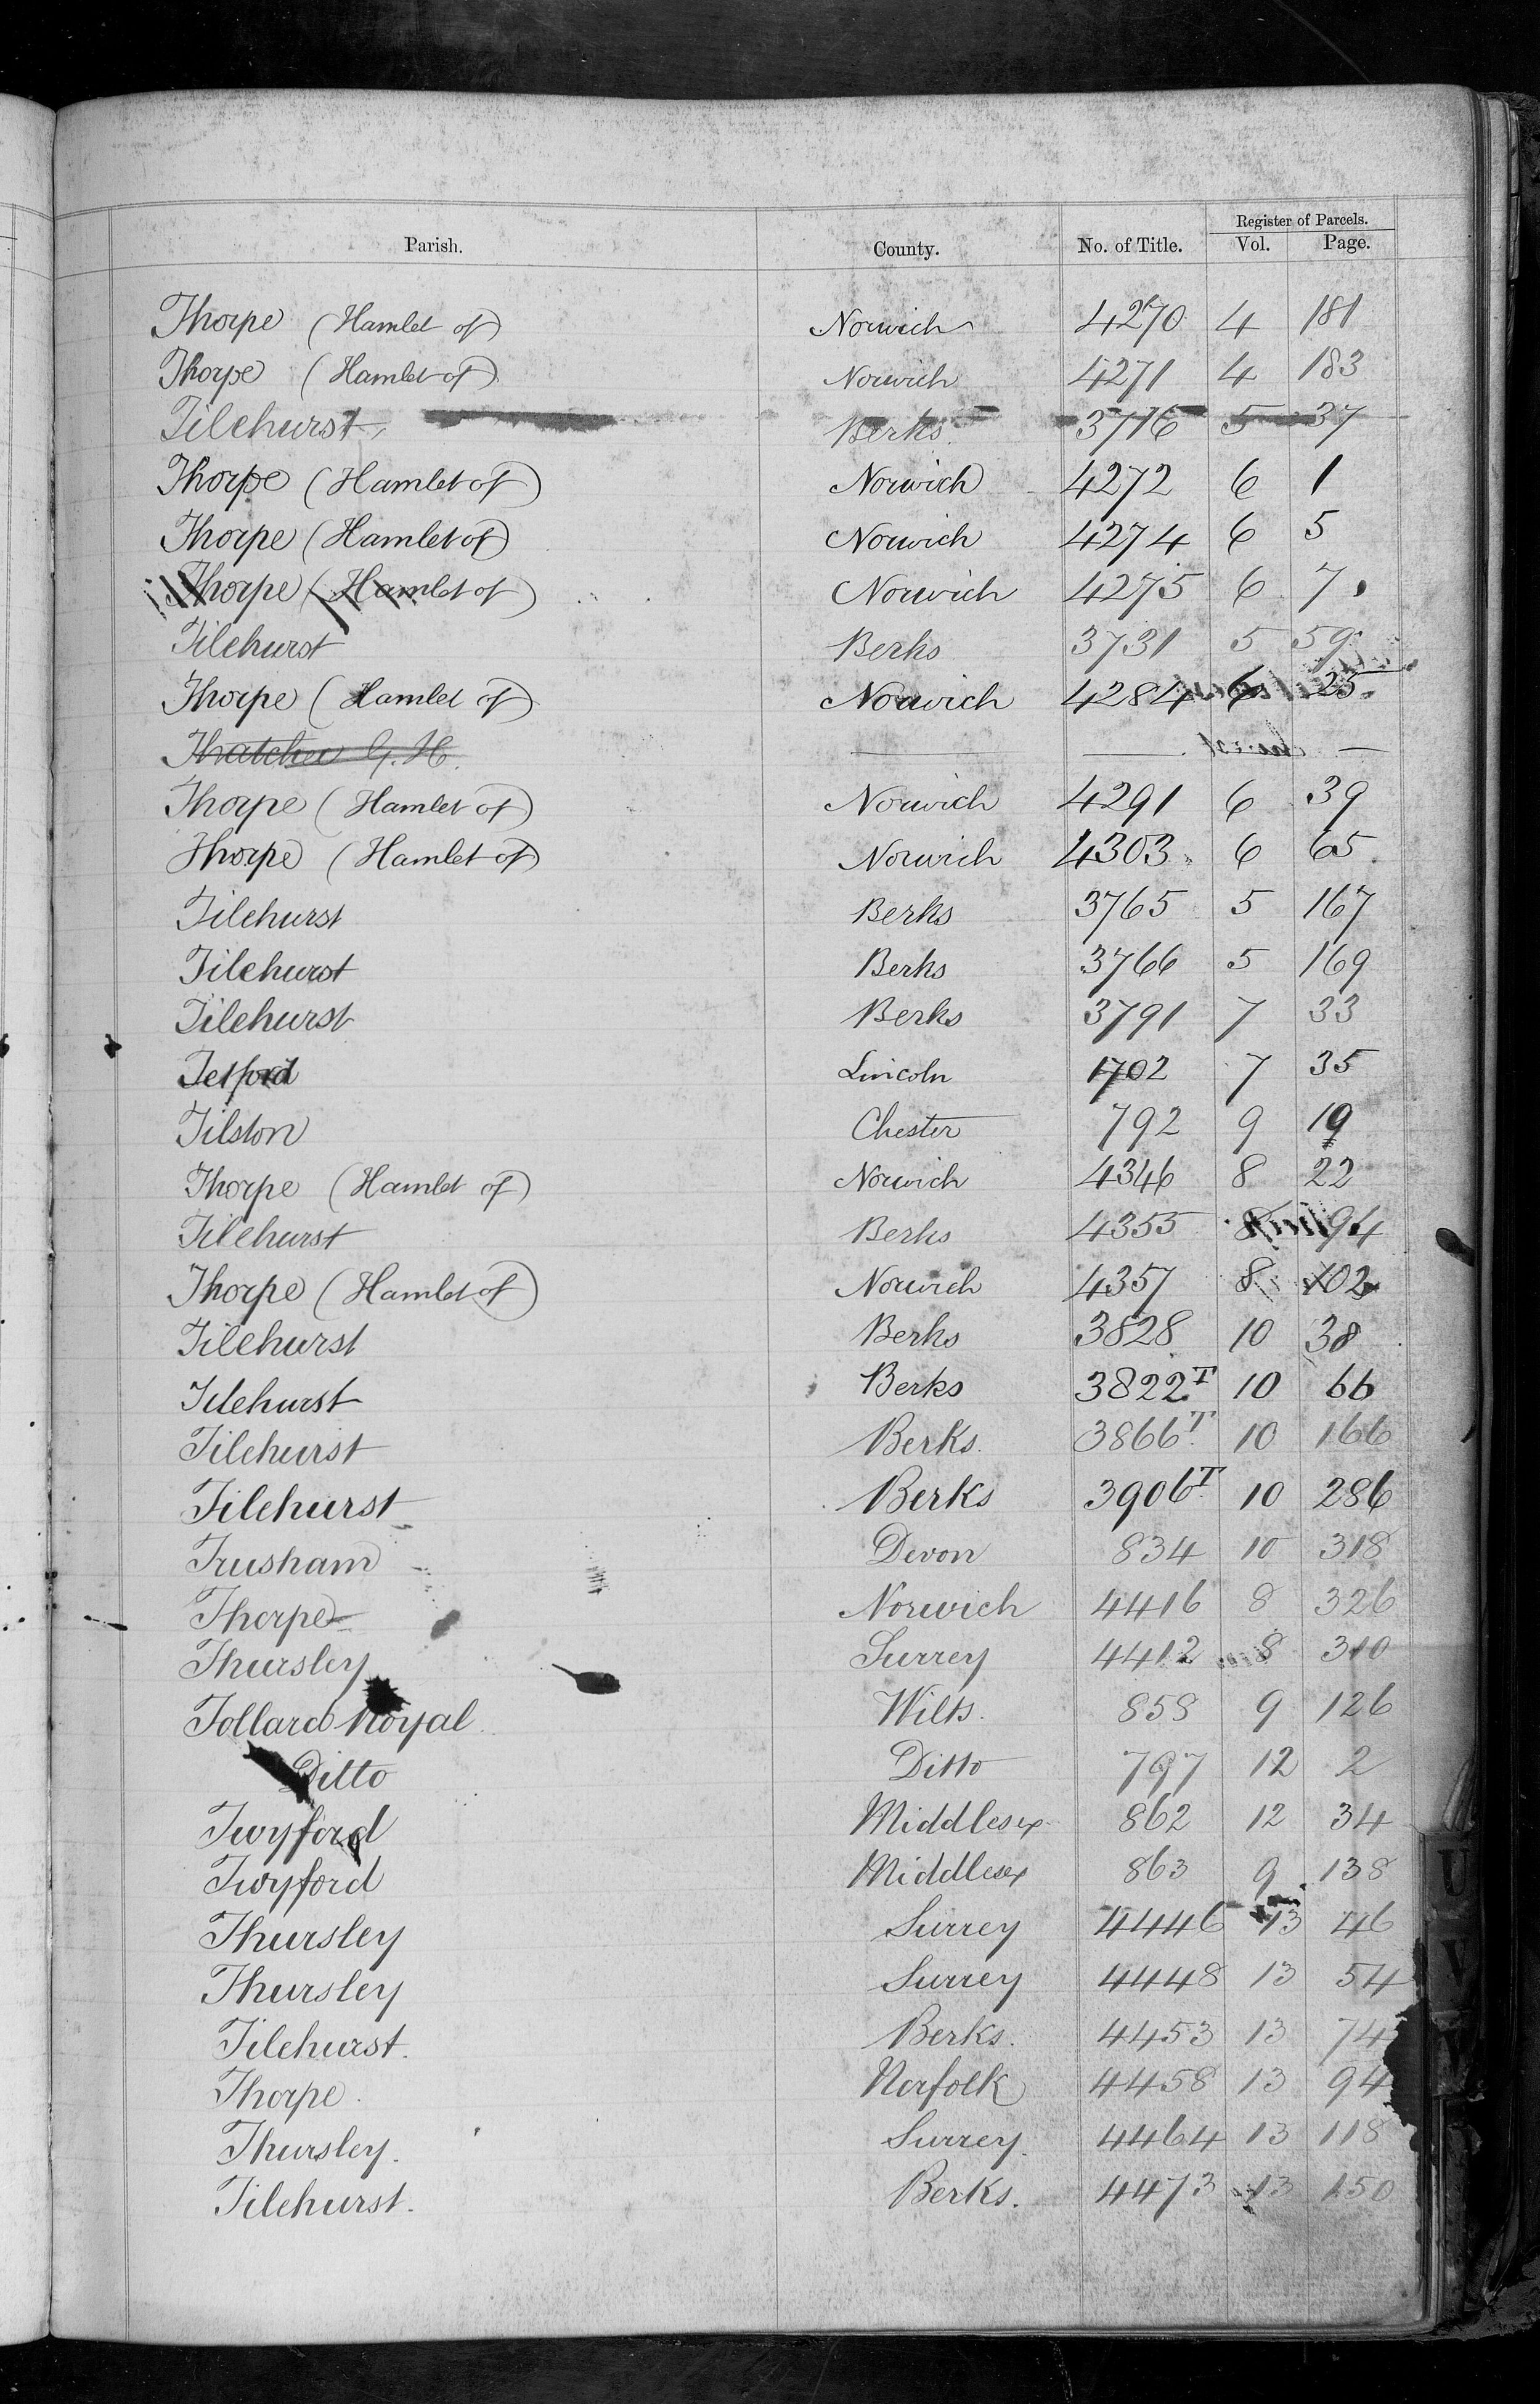 Register of Parcels.
Parish. County. No. of Title. Vol. Page.
Thorpe (Hamlet of) Norwich 4270 4 181
Thorpe (Hamlet of) Norwich 4271 4 183
Tilehurst Berks. 3716 5 37
Thorpe (Hamlet of) Norwich 4272 6 1
Thorpe (Hamlet of) Norwich 4274 6 5
Thorpe (Hamlet of) Norwich 4275 6 7
Tilehurst Berks 3731 5 59
Thorpe (Hamlet of) Norwich 4284 6 25
Thatcher G. H. — — —
Thorpe (Hamlet of) Norwich 4291 6 39
Thorpe (Hamlet of) Norwich 4303 6 65
Tilehurst Berks 3765 5 167
Tilehurst Berks 3766 5 169
Tilehurst Berks 3791 7 33
Tetford Lincoln 1702 7 35
Tilston Chester 792 9 19
Thorpe (Hamlet of) Norwich 4346 8 22
Tilehurst Berks 4355 8 94
Thorpe (Hamlet of) Norwich 4357 8 102
Tilehurst Berks 3828 10 38
Tilehurst Berks 3822T 10 66
Tilehurst Berks. 3866T 10 166
Tilehurst Berks 3906T 10 286
Trusham Devon 834 10 318
Thorpe Norwich 4416 8 326
Thursley Surrey 4412 8 310
Tollard Royal Wilts. 858 9 126
Ditto Ditto 797 12 2
Twyford Middlesex 862 12 34
Twyford Middlesex 863 9 138
Thursley Surrey 4446 13 46
Thursley Surrey 4448 13 54
Tilehurst. Berks. 4453 13 74
Thorpe. Norfolk 4458 13 94
Thursley. Surrey. 4464 13 118
Tilehurst. Berks. 4473 13 150
U
V